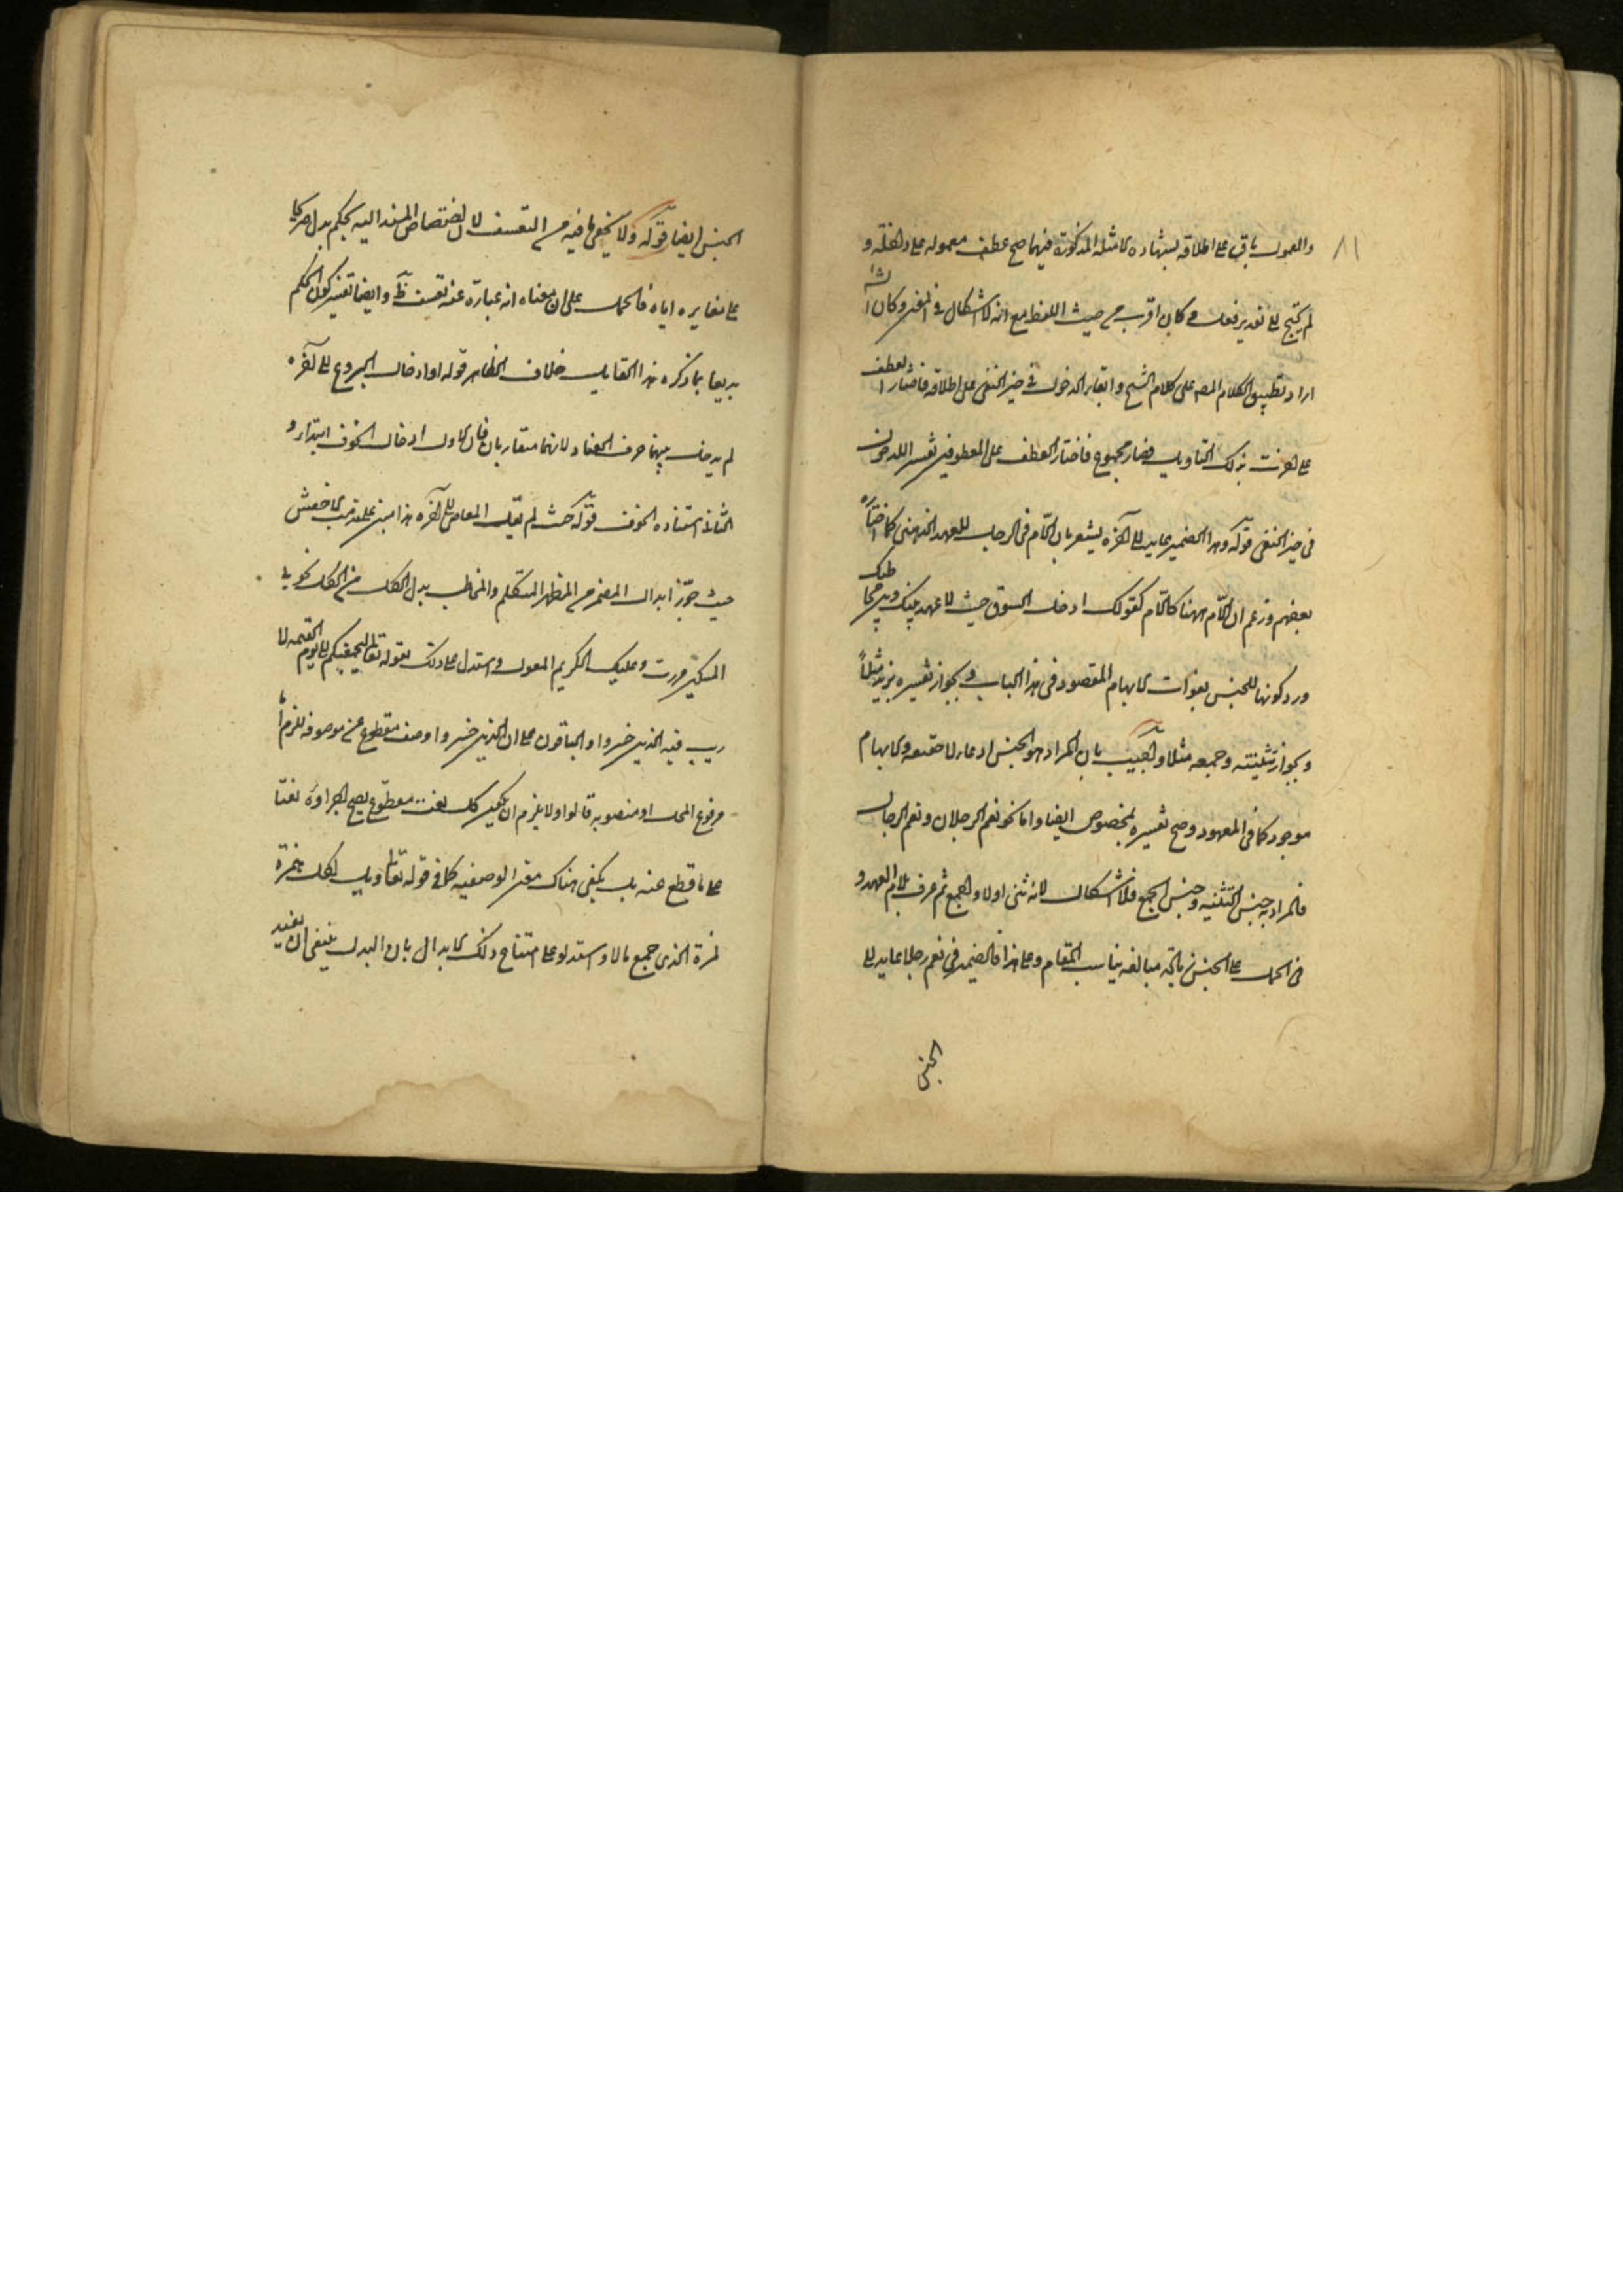 ٨١
والعمول باق على اطلاقه بشهادة الامثلة المذكورة فيهما صح عطف معموله على والفتلة و
لم يحتج الى تقدير فعل كان اقرب من حيث اللفظ مع انه لا اشكال في المفر وكان الشا
اراد تطبيق الكلام المص على كلام الشيخ وابقاء الدخول في حيز النفى على اطلاقه فاختار العطف
على اخرت بذلك التاويل فصار مجموع فاختار العطف على المعطوفين تفسير اللدخول
فى حيز النفى قوله وهذا الضمير عايد الى آخره يشعر بان اللام فى الرجل للعهد الذهنى كما اختاره
بعضهم وزعم ان اللام ههنا كاللام كقولك ادخل السوق حيث لا عهد بينك وبين مخاطبك
ورد كونها للجنس بفوات الابهام المقصود فى هذا الباب وبجواز تفسيره بزيد مثلاً
وبجواز تثنيته وجمعه مثلا واجيب بان المراد هو الجنس ادعاء لا حقيقة والابهام
موجود كما فى المعهود وصح تفسيره بمخصوص ايضا واما نحو نعم الرجلان ونعم الرجال
فالمراد به جنس التثنية وجنس الجمع فلا اشكال لانه ثنى اولا والجمع ثم عرف بلام العهد و
فى الحمل على الجنس مبالغة يناسب المقام وعلى هذا فالضمير فى نعم رجلا عايد الى
الجنس
الجنس ايضا قوله ولا يخفى ما فيه من التعسف لان اختصاص المسند اليه بحكم يدل صريحا
على مغايره اياه فالحمل على ان معناه انه عبارة عنه تعسف ظ وايضا تفسير كون الحكم
بديعا بما ذكره هذا القايل خلاف الظاهر قوله او ادخال الروع الى آخره
لم يدخل بينهما حرف العناد لانهما متقاربان فان الاول ادخال الخوف ابتداء و
الثانى استزاده الخوف قوله حيث لم يقل العاصى الى آخره هذا مبنى على مذهب الاخفش
حيث جوز ابدال المضمر من المظهر المتكلم والمخاطب بدل الكل من الكل نحو بي
المسكين مررت وعليك الكريم المعول واستدل على ذلك بقوله تعالى ليجمعنكم الى يوم القيمة لا
ريب فيه الذين خسروا والباقون على ان الذين خسروا وصف مقطوع عن موصوفه للزم اما
مرفوع المحل او منصوبه قالوا ولا يلزم ان يكون كل نعت مقطوع يصح اجراؤه نعتا
على ما قطع عنه بل يكفى هناك معنى الوصفية كما في قوله تعالى ويل لكل همزة
لمزة الذى جمع مالا واستدلوا على امتناع ذلك الابدال بان البدل ينبغى ان يفيد